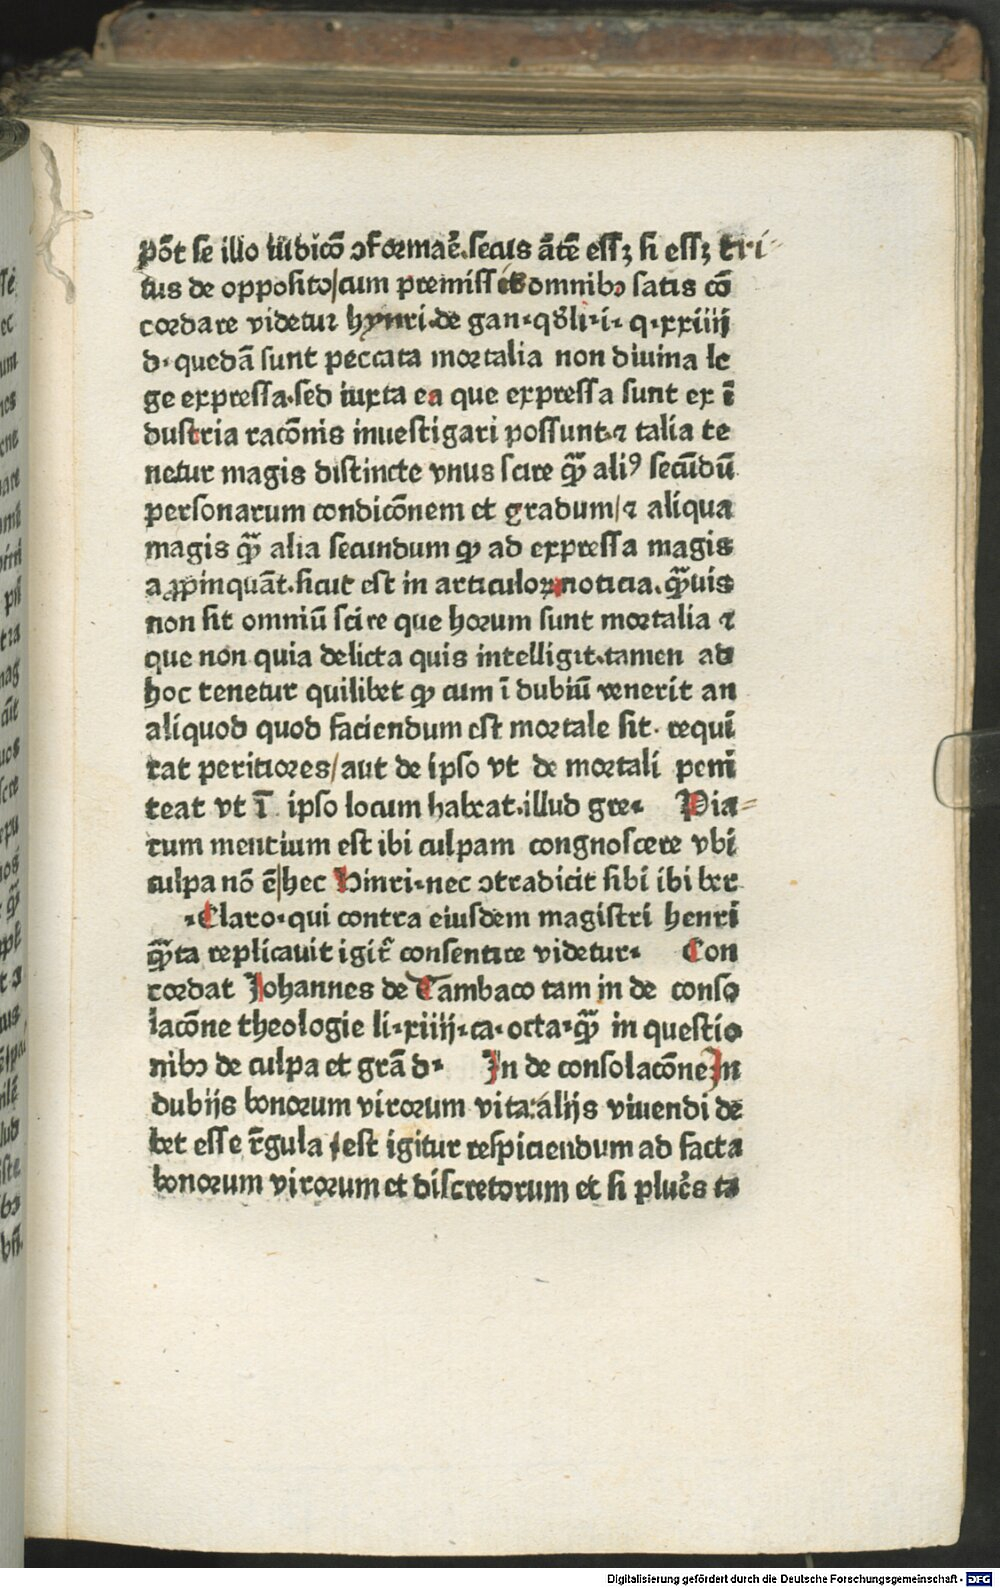 põt se illo iudicõ ɔformaẽ.secus ãtẽ essꝫ si essꝫ cri⸗
tus de opposito/cum premissis omnibꝰ satis cõ
cordare videtur hynri·de gan·qđli·i· q·xxiiij
d·quedã sunt peccata mortalia non diuina le
ge expressa·sed iuxta ea que expressa sunt ex ĩ
dustria racõnis inuestigari possunt·⁊ talia te
netur magis distincte vnus scire q̃ꝫ aliꝰ secũdũ
personarum condicõnem et gradum/⁊ aliqua
magis q̃ꝫ alia secundum ꝙ ad expressa magis
a ꝓpinquãt·sicut est in articuloꝝ noticia·q̃ꝫuis
non sit omniũ scire que horum sunt mortalia ⁊
que non quia delicta quis intelligit·tamen ad
hoc tenetur quilibet ꝙ cum ĩ dubiũ venerit an
aliquod quod faciendum est mortale sit· requi
rat peritiores/aut de ipso vt de mortali peni
teat vt ĩ ipso locum habeat·illud gre· Pia⸗
rum mentium est ibi culpam congnoscere vbi
culpa nõ ẽ/hec Hinri·nec ɔtradicit sibi ibi ber
·Claro·qui contra eiusdem magistri henri
q̃ꝫta replicauit igit̃ consentire videtur· Con
cordat Johannes de Tambaco tam in de conso
lacõne theologie li·xiiij·ca·octa·q̃ꝫ in questio
nibꝰ de culpa et grã d· In de consolacõne In
dubijs bonorum virorum vita:alijs viuendi de
bet esse r̃gula /est igitur respiciendum ad facta
bonorum virorum et discretorum et si plures ta